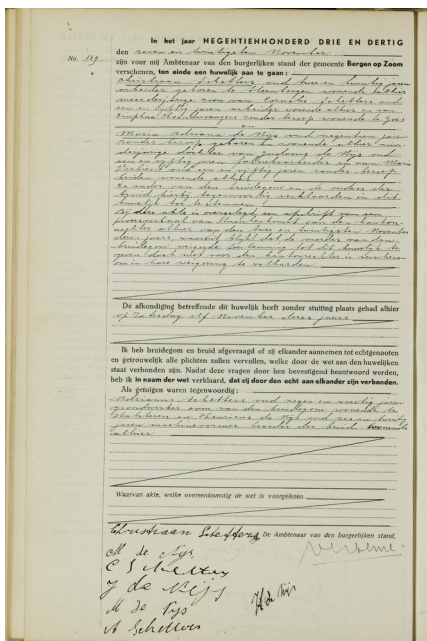 In het jaar NEGENTIENHONDERD DRIE EN DERTIG
den zeven en twintigsten November
No. 189
zijn voor mij Ambtenaar van den burgerlijken stand der gemeente Bergen op Zoom
verschenen, ten einde een huwelijk aan te gaan:
Christiaan Scheffers oud twee en twintig jaren
arbeider geboren te Steenbergen wonende alhier
meerderjarige zoon van Cornelis Scheffers oud
jaren arbeider wonende alhier en
zonder beroep wonende te Goes
en
Maria Adriana de Nijs oud negentien jaren
zonder beroep geboren en wonende alhier min-
derjarige dochter van de Nijs oud
een en vijftig jaren en van Maria
oud een en vijftig jaren zonder beroep
beiden wonende alhier.
De vader van den bruidegom en de ouders der
bruid hierbij tegenwoordig verklaarden in dit
huwelijk toe te stemmen.
Bij deze akte is overgelegd een afschrift van een
proces-verbaal van den kanton-
rechter alhier van den twee en twintigsten November
dezes jaars, waaruit blijkt dat de moeder van den
bruidegom toestemming tot dit huwelijk te
geven doch niet voor den kantonrechter is verschenen
om in hare weigering te volharden.
De afkondiging betreffende dit huwelijk heeft zonder stuiting plaats gehad alhier
op Zaterdag elf November dezes jaars
Ik heb bruidegom en bruid afgevraagd of zij elkander aannemen tot echtgenooten
en getrouwelijk alle plichten zullen vervullen, welke door de wet aan den huwelijken
staat verbonden zijn. Nadat deze vragen door hen bevestigend beantwoord werden,
heb ik in naam der wet verklaard, dat zij door den echt aan elkander zijn verbonden.
Als getuigen waren tegenwoordig:
Adrianus Scheffers oud negen en veertig jaren
grondwerker oom van den bruidegom wonende te
Halsteren en de Nijs oud zes en twintig
jaren machinevormer broeder der bruid wonende
alhier
Waarvan akte, welke overeenkomstig de wet is voorgelezen.
Christiaan Scheffers De Ambtenaar van den burgerlijken stand,
M de Nijs
C Scheffers
J de Nijs
H de Nijs
M de Nijs
A Scheffers